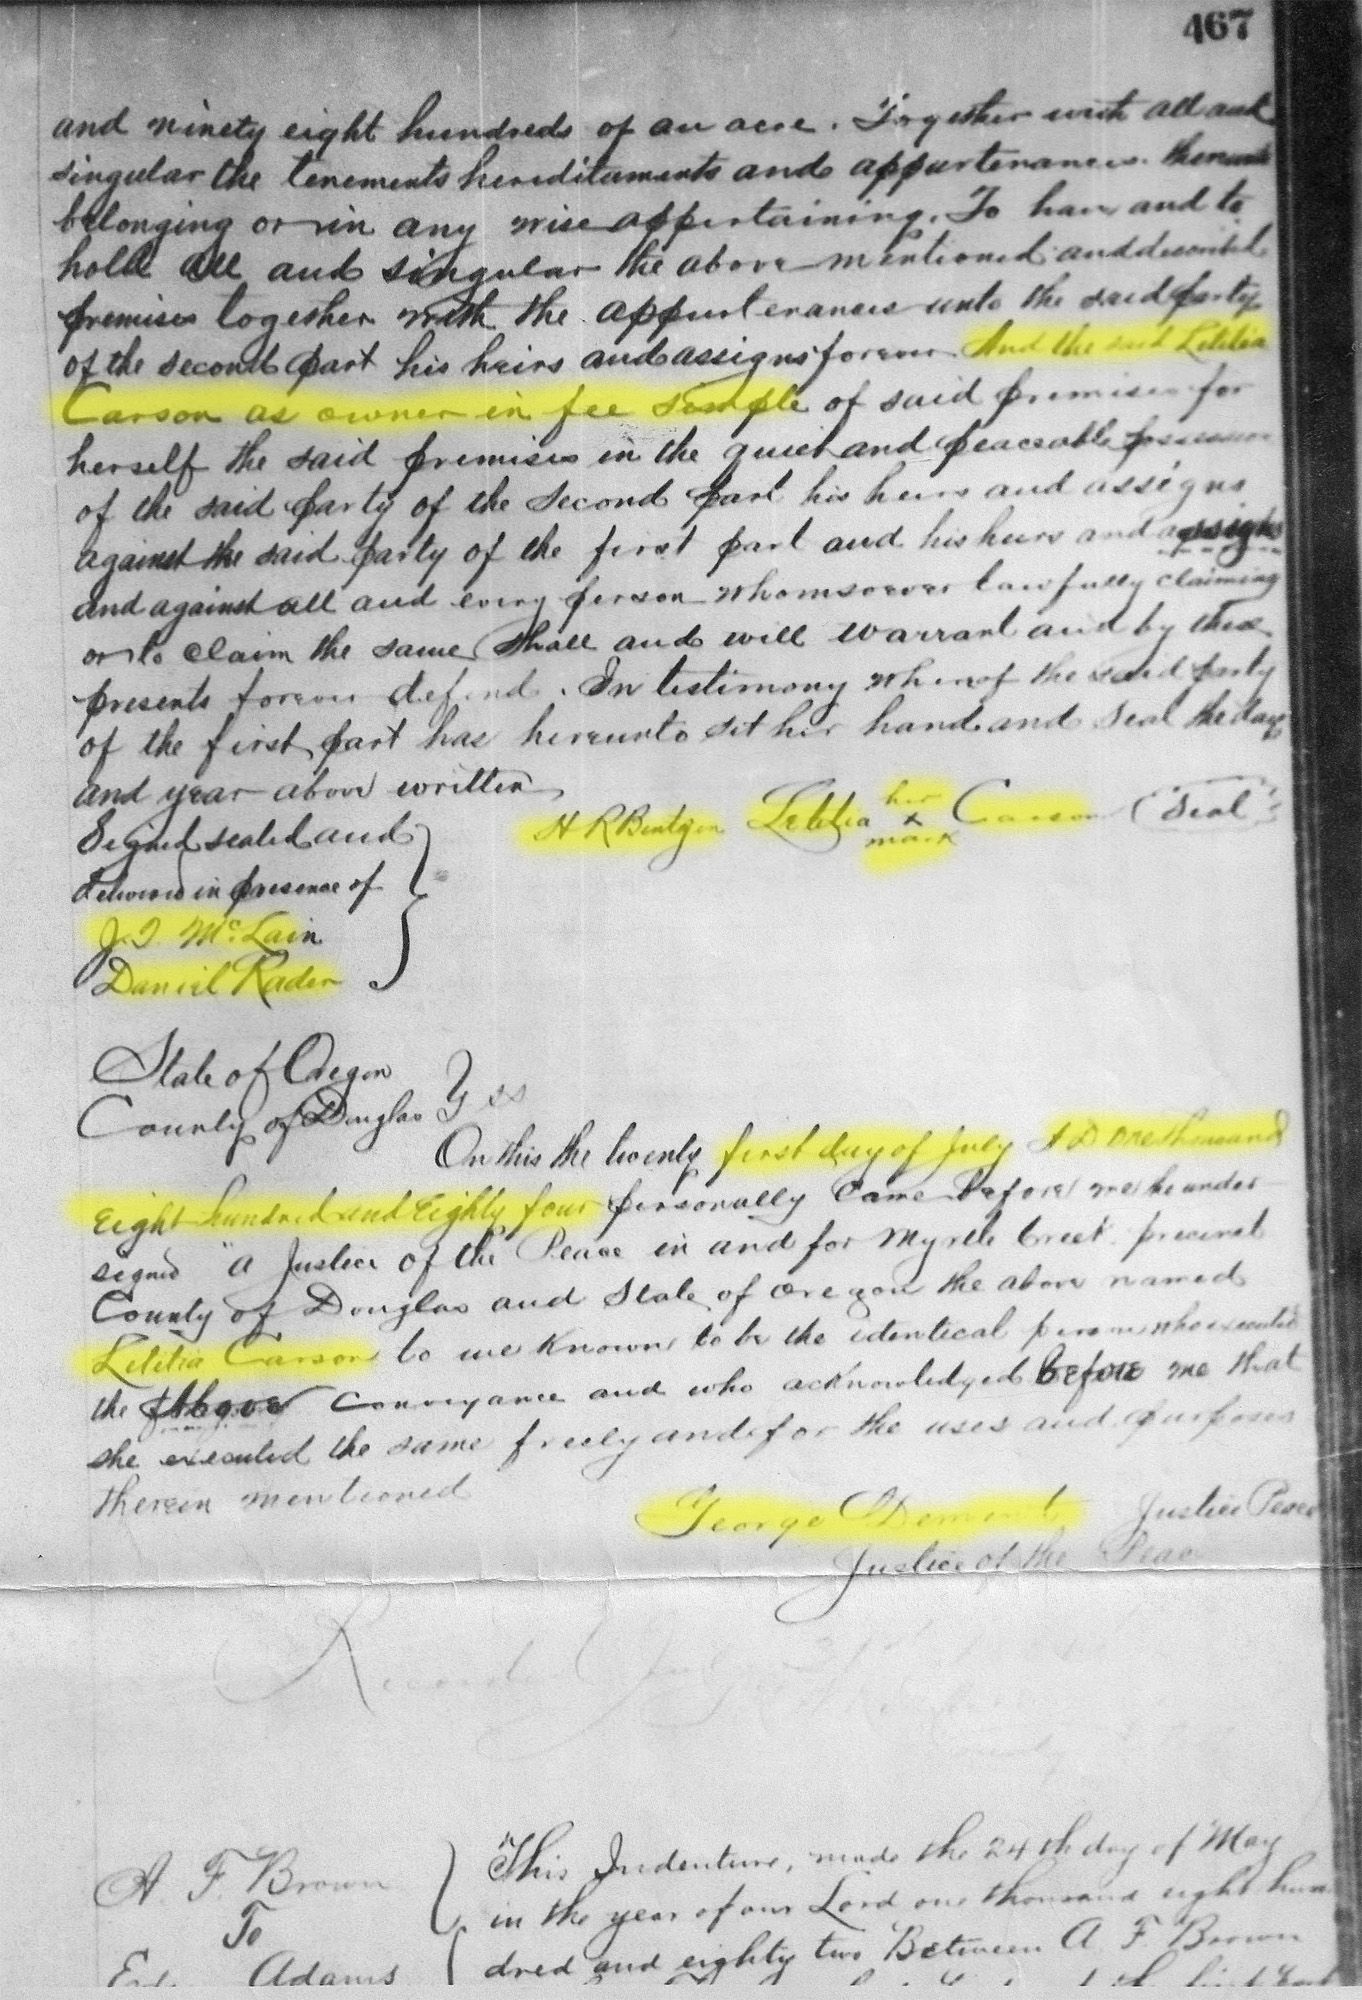 467
and ninety eight hundreds of an acre. Together with all and
singular the tenements hereditaments and appurtenances thereunto
belonging or in any wise appertaining. To have and to
hold all and singular the above mentioned and described
premises together with the appurtenances unto the said party
of the second part his heirs and assigns forever And the said Letitia
Carson as owner in fee simple of said premises for
herself the said premises in the quiet and peaceable possession
of the said party of the second part his heirs and assigns
against the said party of the first part and his heirs and assigns
and against all and every person whomsoever lawfully claiming
or to claim the same shall and will warrant and by these
presents forever defend. In testimony whereof the said party
of the first part has hereunto set her hand and seal the day
and year above written
Signed sealed and
delivered in presence of
J. T. McLain
Daniel Rader
H R Bentgen Letitia her x mark Carson (Seal)
State of Oregon
County of Douglas } ss
On this the twenty first day of July A D one thousand
Eight hundred and Eighty four personally came before me the under
signed a Justice of the Peace in and for Myrtle Creek precinct
County of Douglas and State of Oregon the above named
Letitia Carson to me known to be the identical person who executed
the above conveyance and who acknowledged before me that
she executed the same freely and for the uses and purposes
therein mentioned
George Dement Justice Peace
Justice of the Peace
Recorded July 31st
A. F. Brown
To
Adams
This Indenture, made the 24th day of May
in the year of our Lord one thousand eight hun
dred and eighty two Between A F Brown